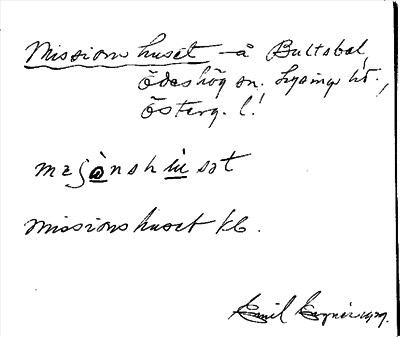 Missionshuset å Bultsbol,
Ödeshög sn. Lysings hd.,
Österg. l.
mɪʃὼnshù̀sət
Missionshuset kb.
Emil 1929.